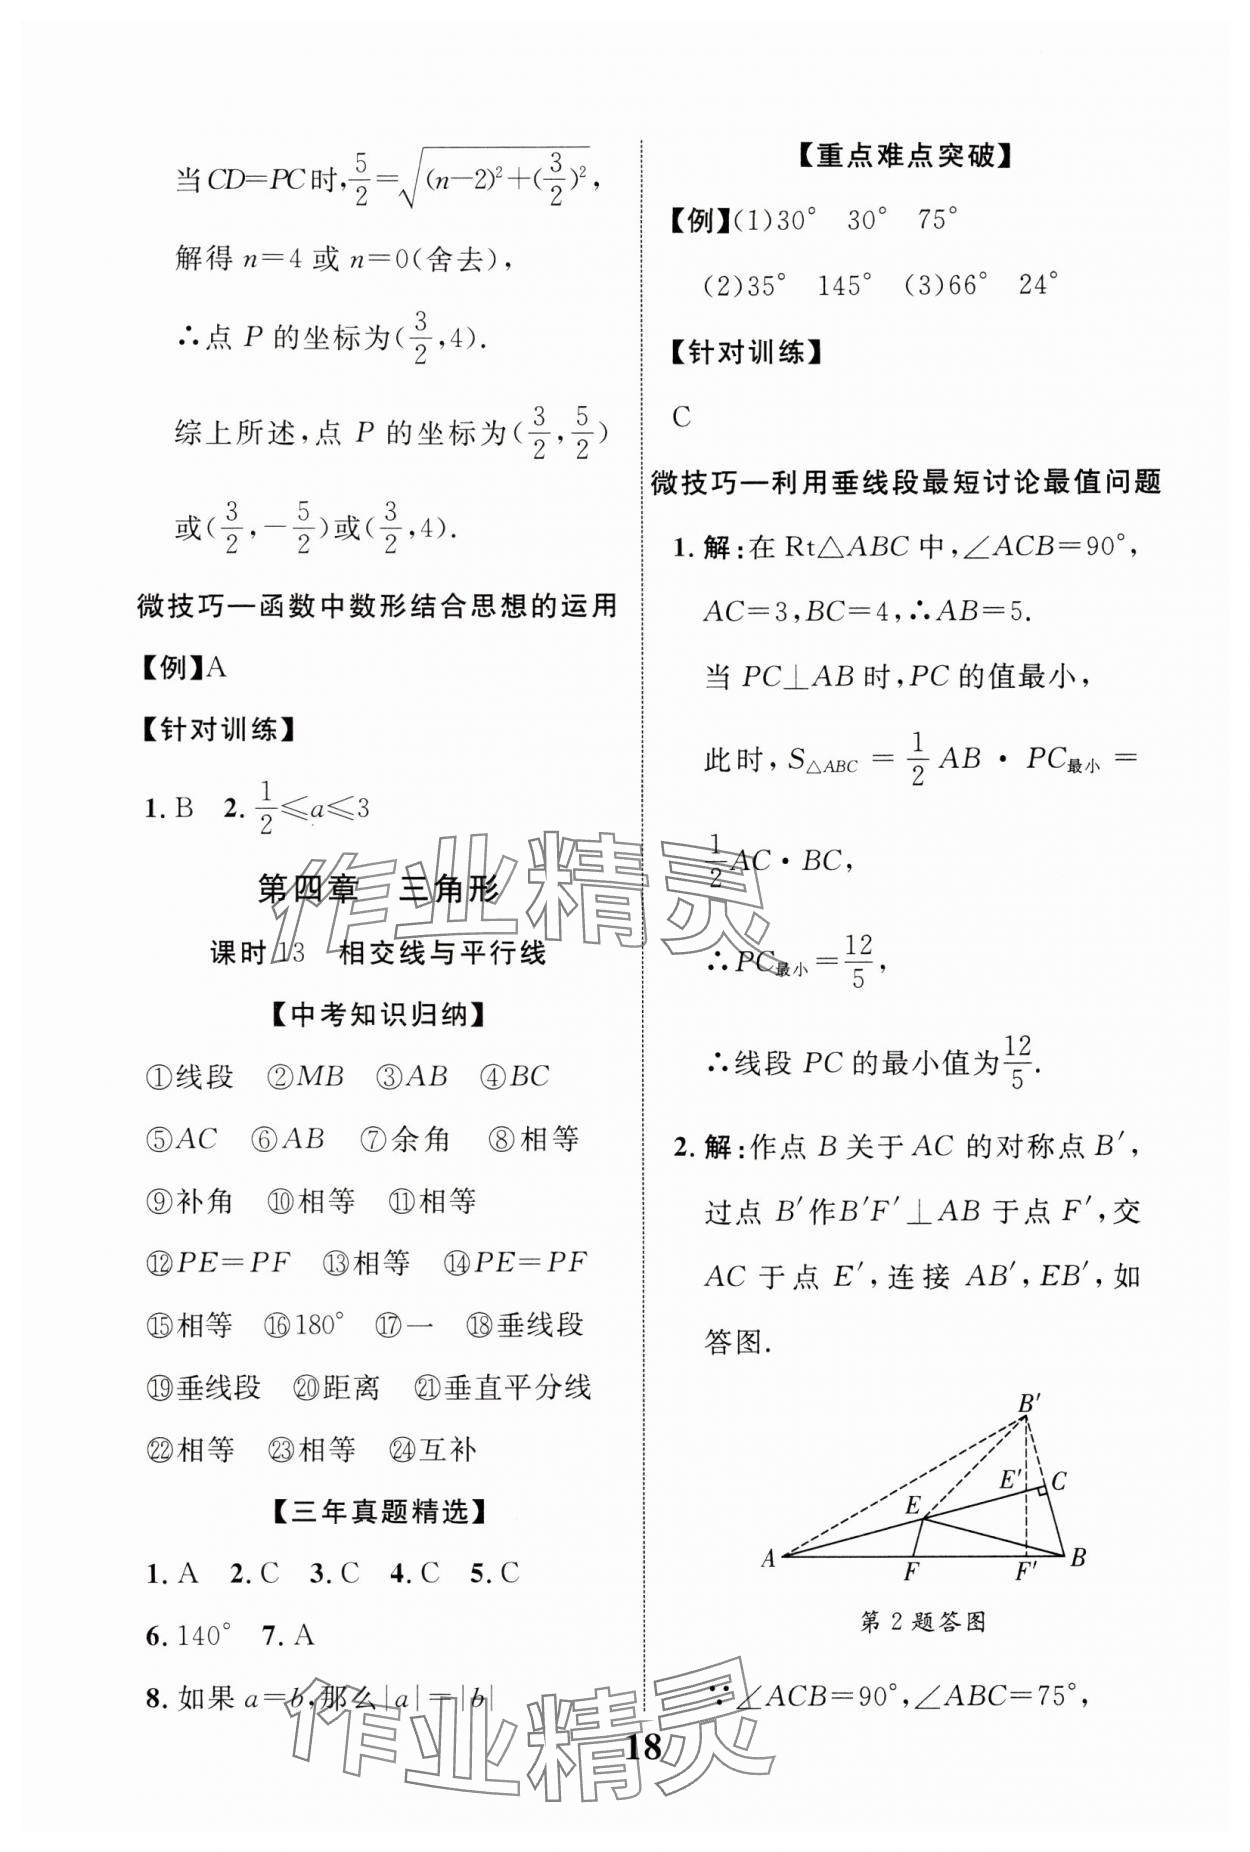 当CD=PC时,5/2=√((n-2)²+(3/2)²),
解得 n=4 或 n=0(舍去),
∴点 P 的坐标为(3/2,4).
综上所述,点 P 的坐标为(3/2,5/2)
或(3/2,-5/2)或(3/2,4).
微技巧—函数中数形结合思想的运用
【例】A
【针对训练】
1. B 2. 1/2≤a≤3
第四章 三角形
课时 13 相交线与平行线
【中考知识归纳】
①线段 ②MB ③AB ④BC
⑤AC ⑥AB ⑦余角 ⑧相等
⑨补角 ⑩相等 ⑪相等
⑫PE=PF ⑬相等 ⑭PE=PF
⑮相等 ⑯180° ⑰一 ⑱垂线段
⑲垂线段 ⑳距离 ㉑垂直平分线
㉒相等 ㉓相等 ㉔互补
【三年真题精选】
1. A 2. C 3. C 4. C 5. C
6. 140° 7. A
8. 如果 a=b,那么|a|=|b|
【重点难点突破】
【例】(1)30° 30° 75°
(2)35° 145° (3)66° 24°
【针对训练】
C
微技巧—利用垂线段最短讨论最值问题
1. 解:在 Rt△ABC 中,∠ACB=90°,
AC=3,BC=4,∴AB=5.
当 PC⊥AB 时,PC 的值最小,
此时,S△ABC = 1/2 AB · PC最小 =
1/2 AC·BC,
∴PC最小=12/5,
∴线段 PC 的最小值为12/5.
2. 解:作点 B 关于 AC 的对称点 B′,
过点 B′作B′F′⊥AB 于点 F′,交
AC 于点 E′,连接 AB′,EB′,如
答图.
B′
E′ C
E
A F F′ B
第 2 题答图
∵∠ACB=90°,∠ABC=75°,
18
作业精灵
作业精灵